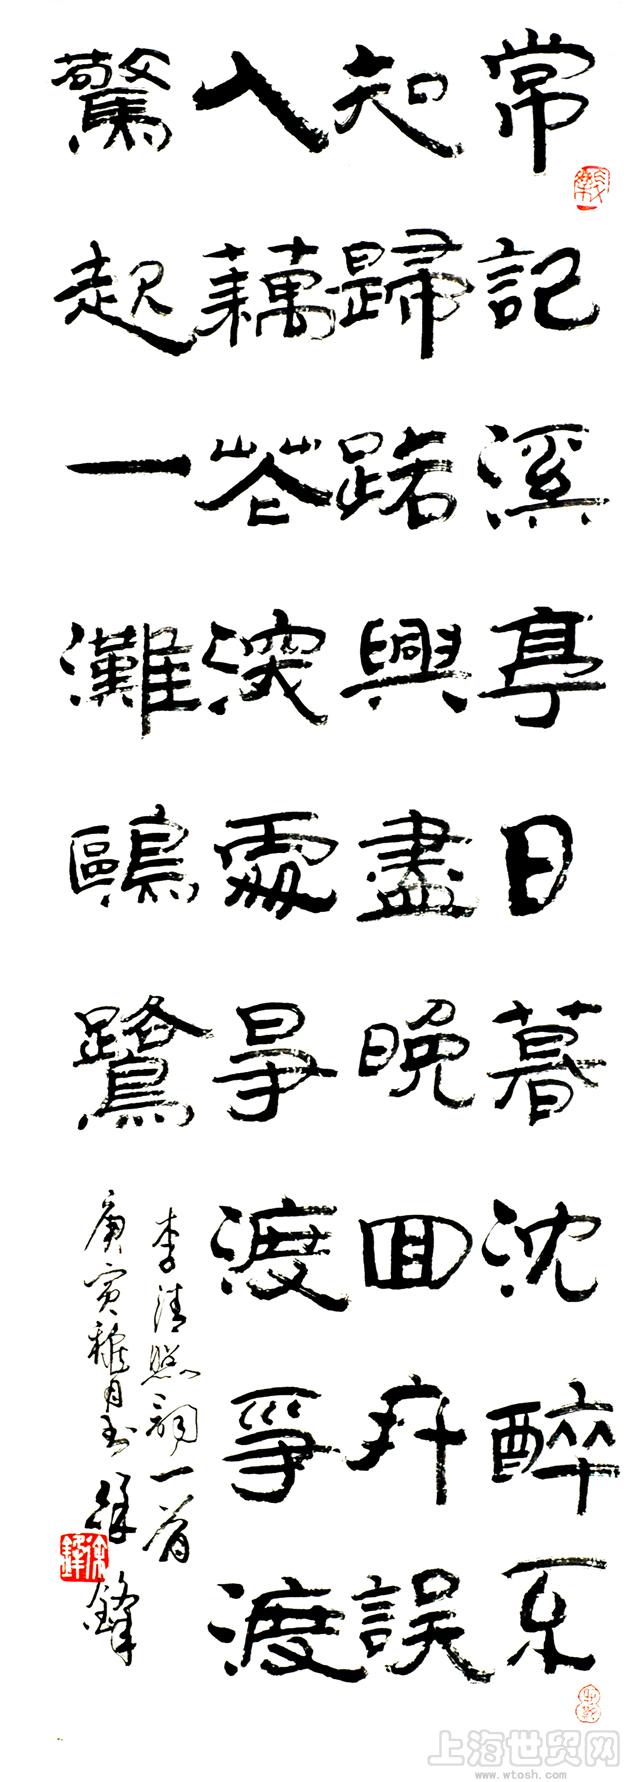 常記溪亭日暮沈醉不
知歸路興盡晚回舟誤
入藕花深處爭渡爭渡
驚起一灘鷗鷺
李清照詞一首
庚寅月书徐鋒
徐鋒
上海世贸网
www.wtosh.com